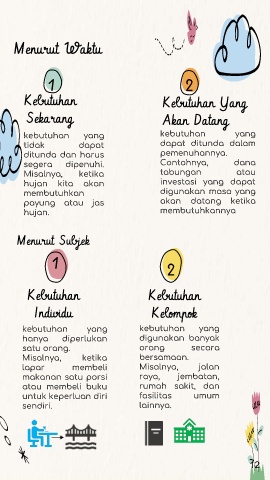 Menurut Waktu
1
Kebutuhan
Sekarang
kebutuhan yang
tidak dapat
ditunda dan harus
segera dipenuhi.
Misalnya, ketika
hujan kita akan
membutuhkan
payung atau jas
hujan.
2
Kebutuhan Yang
Akan Datang
kebutuhan yang
dapat ditunda dalam
pemenuhannya.
Contohnya, dana
tabungan atau
investasi yang dapat
digunakan masa yang
akan datang ketika
membutuhkannya
Menurut Subjek
1
Kebutuhan
Individu
kebutuhan yang
hanya diperlukan
satu orang.
Misalnya, ketika
lapar membeli
makanan satu porsi
atau membeli buku
untuk keperluan diri
sendiri.
2
Kebutuhan
Kelompok
kebutuhan yang
digunakan banyak
orang secara
bersamaan.
Misalnya, jalan
raya, jembatan,
rumah sakit, dan
fasilitas umum
lainnya.
12